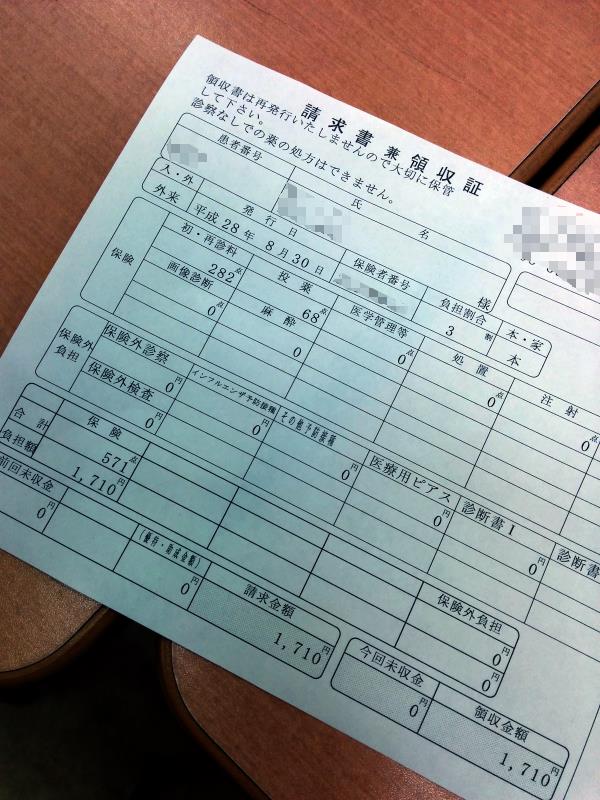 請求書兼領収証
領収書は再発行いたしませんので大切に保管
して下さい。
診察なしでの薬の処方はできません。
患者番号 氏 名
様
入・外 発 行 日 保険者番号 負担割合 本・家
外来 平成28年 8月30日 3割 本
保険 初・再診料 投 薬 医学管理等 処 置 注 射
282点 68点 0点 0点 0
画像診断 麻 酔
0点 0
保険外負担 保険外診察 インフルエンザ予防接種 その他予防接種 医療用ピアス 診断書1 診断書
0円 0円 0円 0円 0円
保険外検査
0円
合 計 保 険
571点
負担額 1,710円
保険外負担
0円
0円
前回未収金 (優待・助成金額) 請求金額 今回未収金 領収金額
0円 0円 1,710円 0円 1,710円